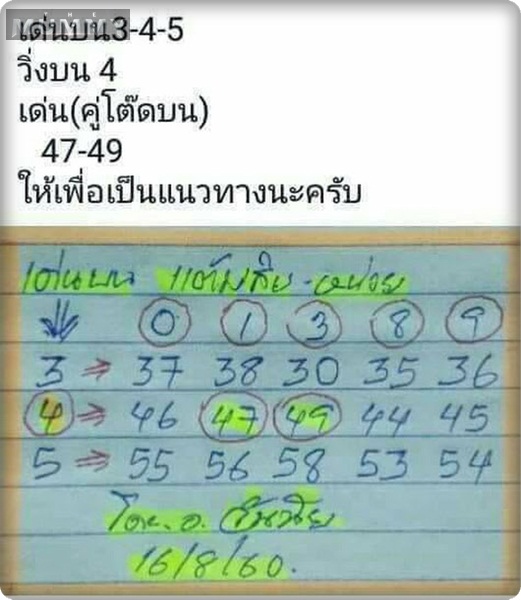 เด่นบน3-4-5
วิ่งบน 4
เด่น(คู่โต๊ดบน)
47-49
ให้เพื่อเป็นแนวทางนะครับ
เด่นบน แต้มสิบ-หน่วย
0 1 3 8 9
3 ⇒ 37 38 30 35 36
4 ⇒ 46 47 49 44 45
5 ⇒ 55 56 58 53 54
โดย. อ.
16/8/60.